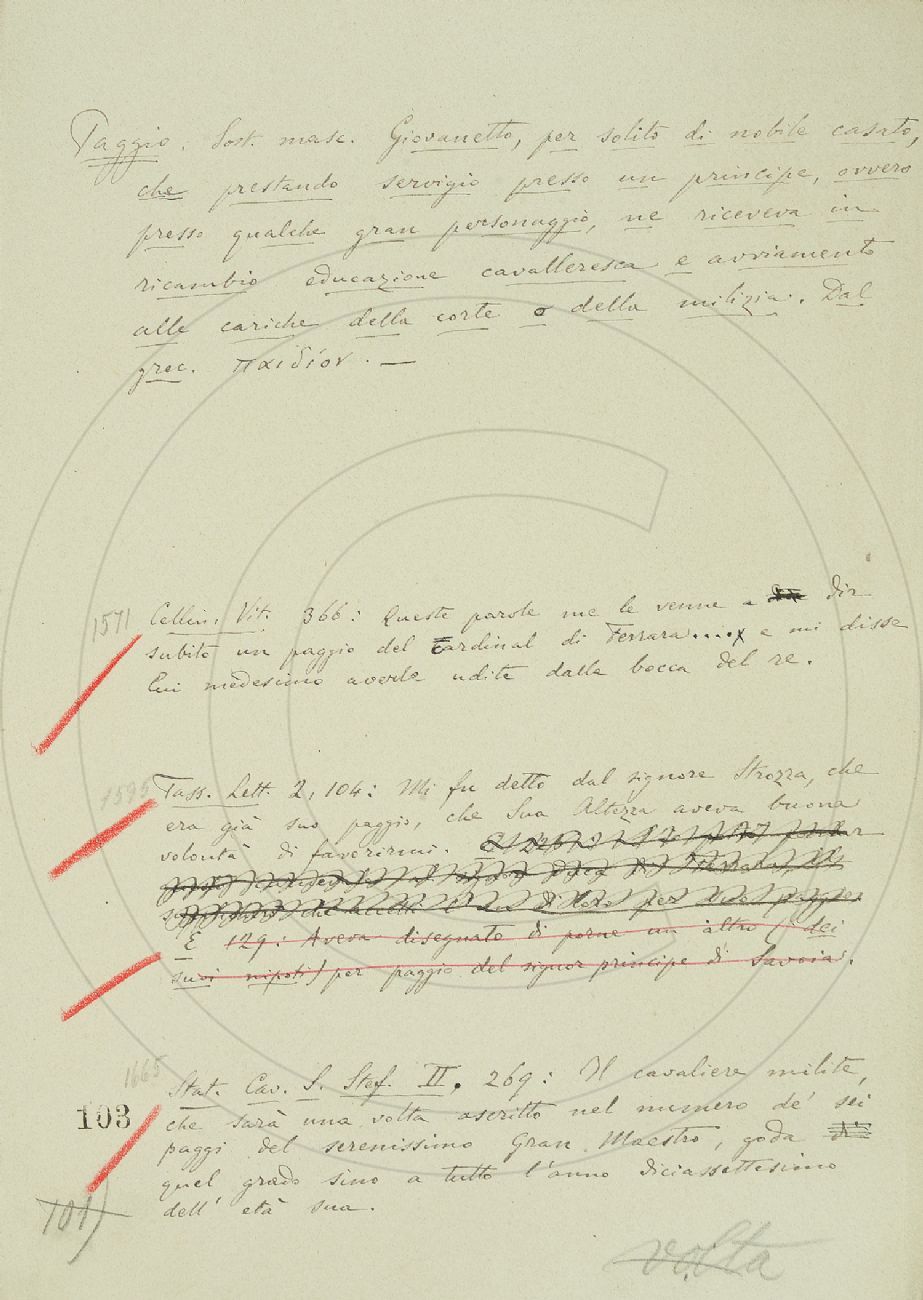 Paggio. Sost. masc. Giovanetto, per solito di nobile casato,
che prestando servigio presso un principe, ovvero
presso qualche gran personaggio, ne riceveva in
ricambio educazione cavalleresca e avviamento
alle cariche della corte o della milizia. Dal
grec. παιδίον. —
1571
Cellin. Vit. 366: Queste parole me le venne a dir
subito un paggio del Cardinal di Ferrara....x e mi disse
lui medesimo averle udite dalla bocca del re.
1595
Tass. Lett. 2, 104: Mi fu detto dal signore Strozza, che
era già suo paggio, che Sua Altezza aveva buona
volontà di favorirmi.
E 129: Aveva disegnato di porne un altro (dei
suoi nipoti) per paggio del signor principe di Savoia.
1665
Stat. Cav. S. Stef. II. 269: Il cavaliere milite,
che sarà una volta ascritto nel numero de' sei
103
paggi del serenissimo Gran Maestro, goda
quel grado sino a tutto l'anno diciassettesimo
dell' età sua.
101)
volta